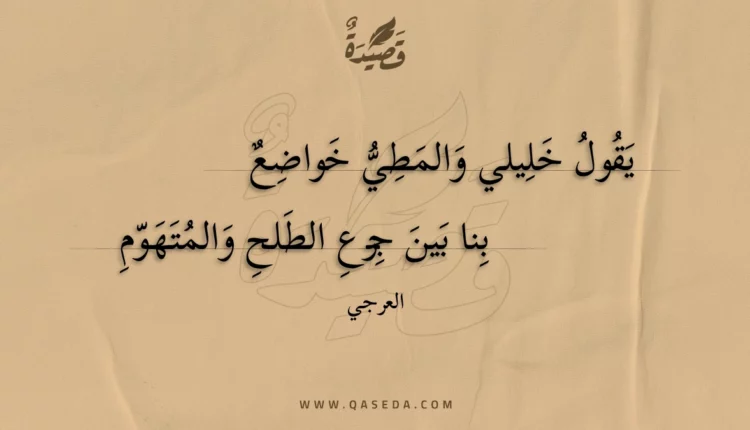 قَصِيْدَةٌ
يَقُولُ خَلِيلي وَالمَطِيُّ خَواضِعٌ
بِنا بَينَ جِزعِ الطَلحِ وَالمُتَهَوّمِ
العرجي
WWW.QASEDA.COM